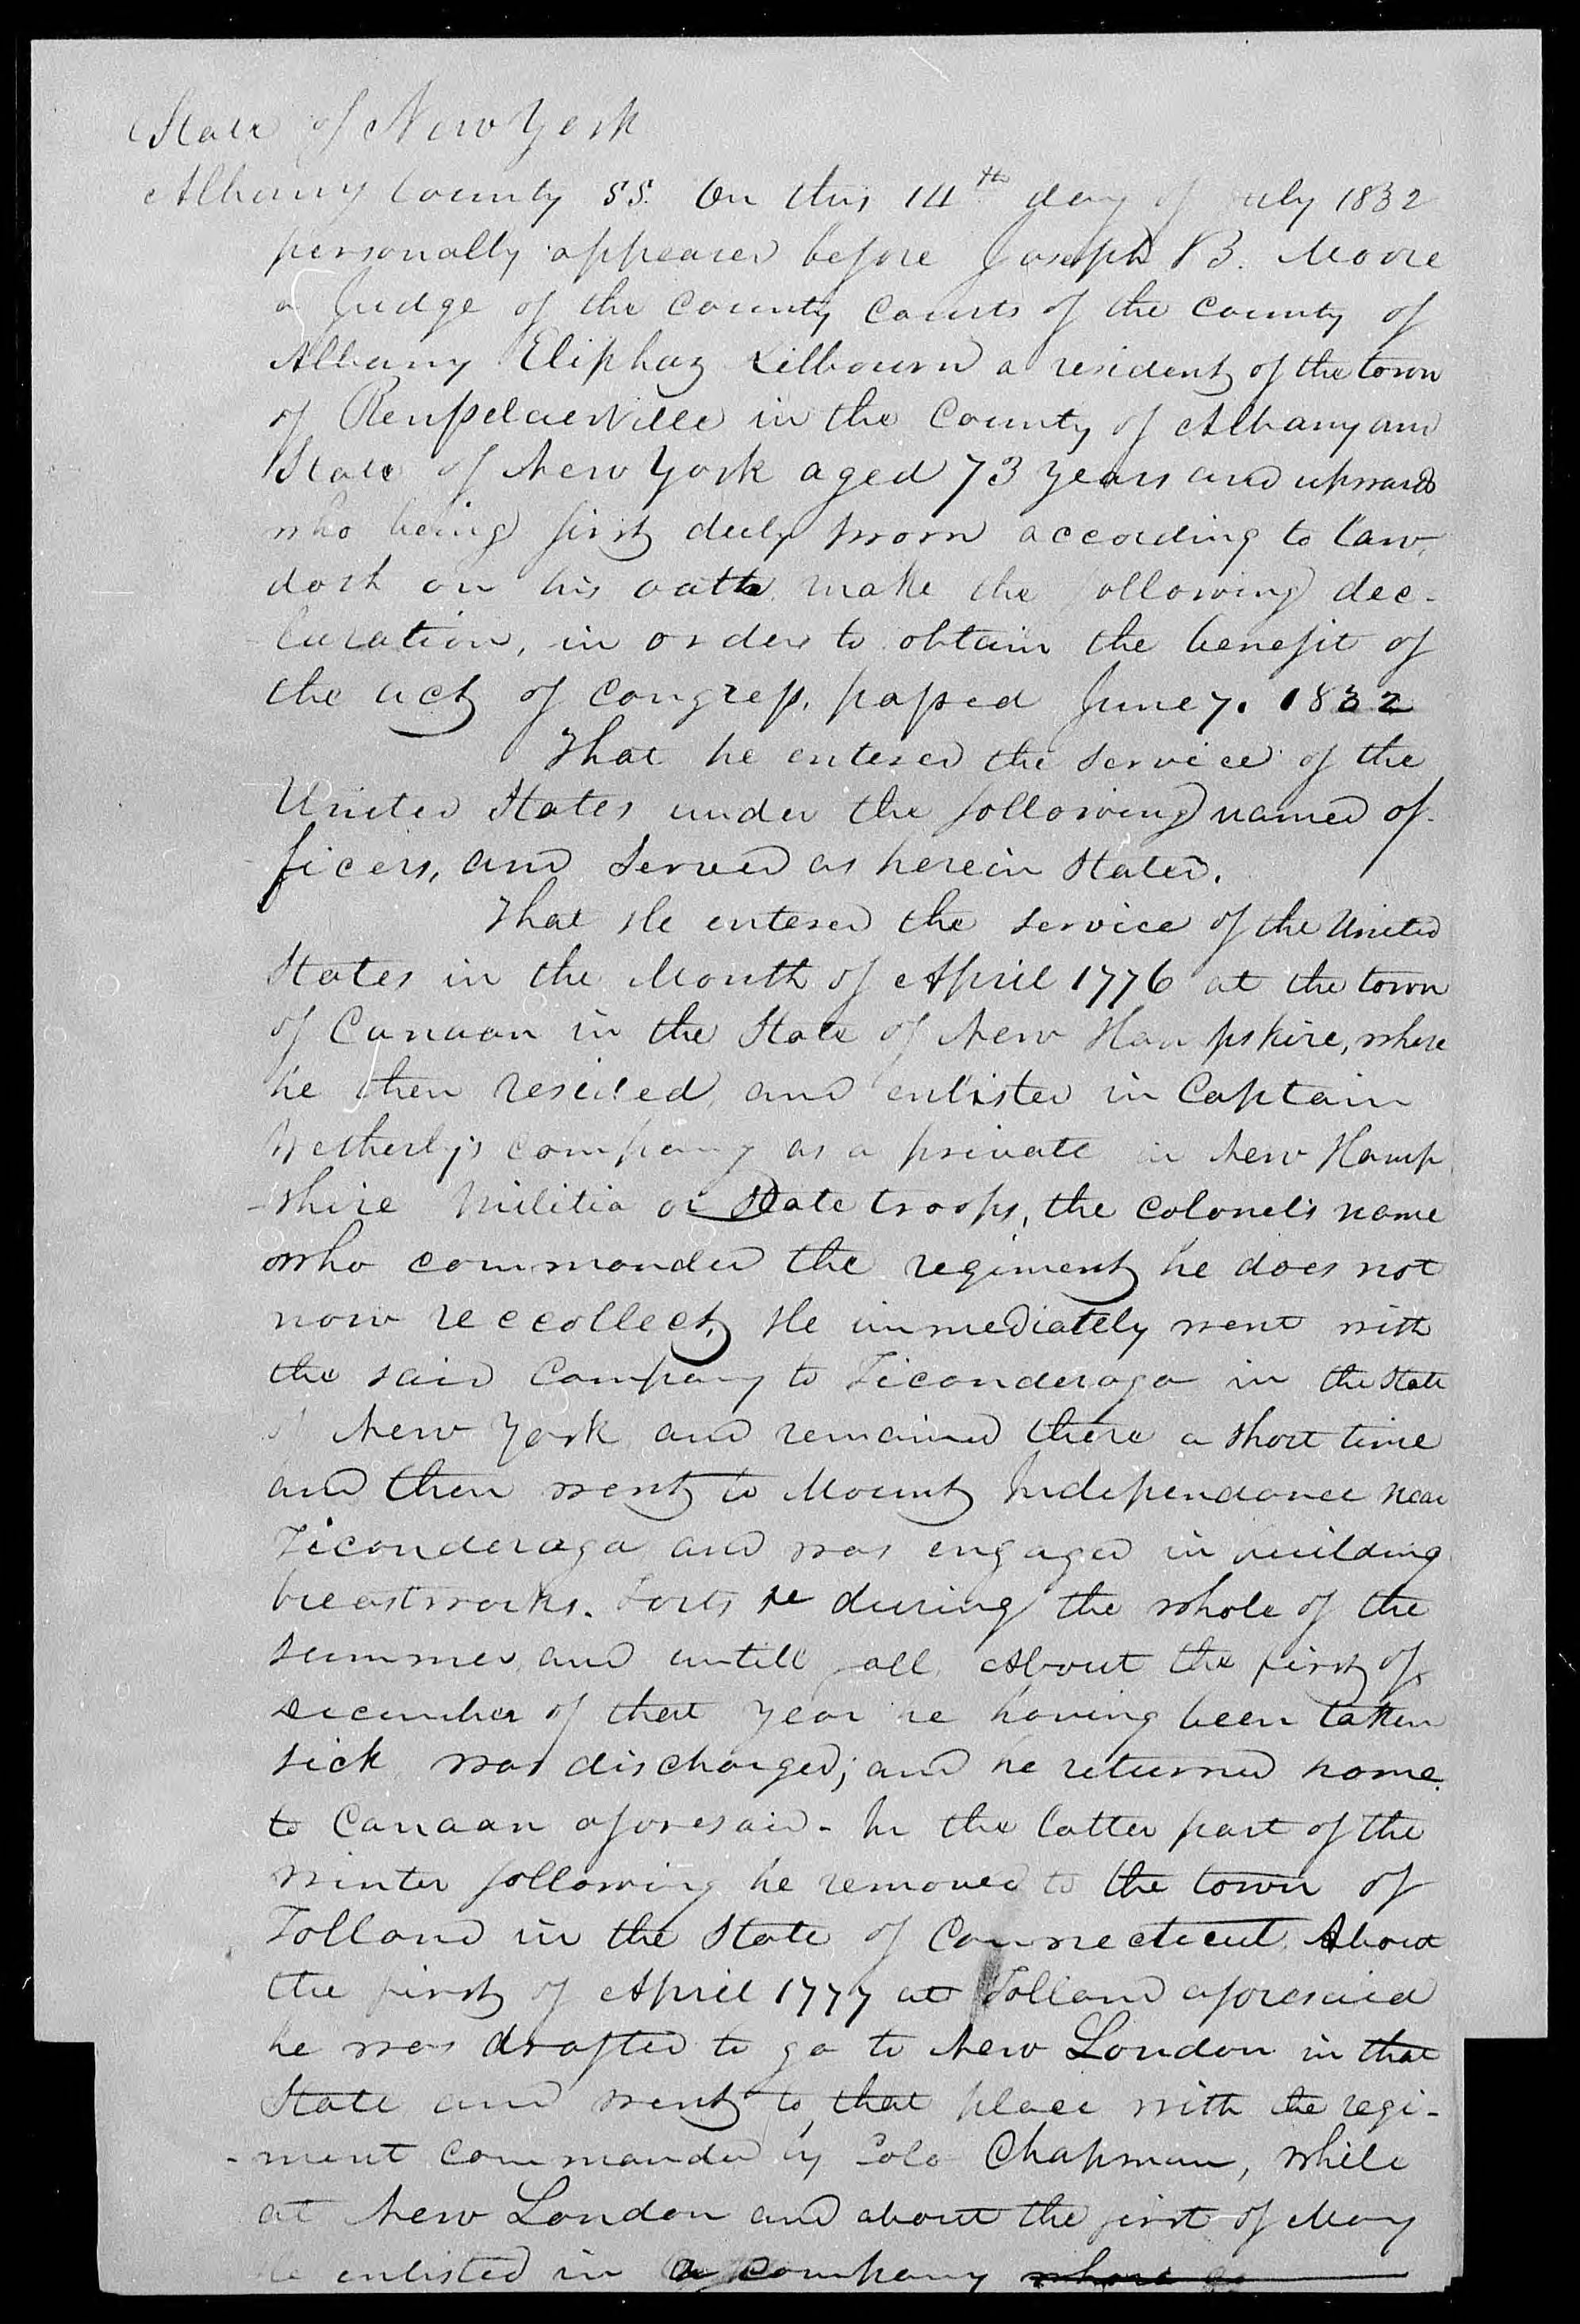 State of New York
Albany County SS. On this 14th day of July 1832
personally appeared before Joseph B. Moore
a Judge of the County Courts of the County of
Albany Eliphaz Kilbourn a resident of the town
of Rensselaerville in the County of Albany and
State of New York aged 73 years and upwards
who being first duly sworn according to law,
doth on his oath make the following dec-
laration, in order to obtain the benefit of
the act of Congress, passed June 7. 1832
That he entered the service of the
United States under the following named of-
ficers, and served as herein stated.
That He entered the service of the United
States in the Month of April 1776 at the town
of Canaan in the State of New Hampshire, where
he then resided, and enlisted in Captain
Wetherly's company as a private in New Hamp
-shire Militia or State troops, the colonel's name
who commanded the regiment he does not
now reccollect, He immediately went with
the said Company to Ticonderoga in the State
of New York and remained there a short time
and then went to Mount Independance near
Ticonderoga and was engaged in building
breastworks. Forts &c during the whole of the
summer and untill fall. About the first of
December of that year he having been taken
sick was discharged; and he returned home
to Canaan aforesaid - In the latter part of the
winter following he removed to the town of
Tolland in the State of Connecticut. About
the first of April 1777 at Tolland aforesaid
he was drafted to go to New London in that
State and went to that place with the regi-
-ment commanded by Colo Chapman, while
at New London and about the first of May
he enlisted in a company